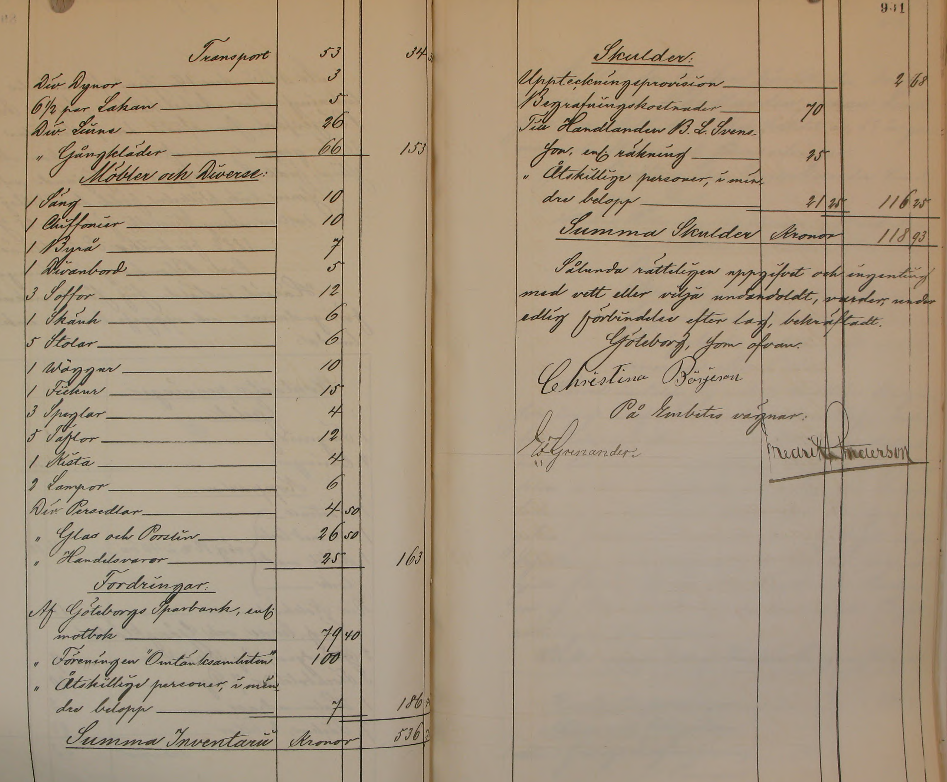 Transport 53 34
Div Dynor 3
6 1/2 par Lakan 5
Div Linne 26
" Gångkläder 66 153
Möbler och Diverse:
1 Säng 10
1 Chiffonier 10
1 Byrå 7
1 Divanbord 5
3 Soffor 12
1 Skänk 6
5 Stolar 6
1 Wäggur 10
1 Fickur 15
3 Speglar 4
5 Taflor 12
1 Kista 4
2 Lampor 6
Div Persedlar 4 50
" Glas och Porslin 26 50
" Handelsvaror 25 163
Fordringar.
Af Göteborgs Sparbank, enl
motbok 79 40
" Föreningen "Omtänksamheten" 100
" Åtskillige personer, i min
dre belopp 7 186
Summa Inventarii Kronor 536
941
Skulder:
Uppteckningsprovision 2 68
Begrafningskostnader 70
Till Handlanden B. L. Svens-
son, enl räkning 25
" Åtskillige personer, i min
dre belopp 21 25 116 25
Summa Skulder Kronor 118 93
Sålunda rätteligen uppgifvet och ingenting
med vett eller vilja undandoldt, varder, under
edlig förbindelse efter lag, bekräftadt.
Göteborg, som ofvan.
Christina Börjeson
På Embetes vägnar:
Grenander
Fredrik Anderson